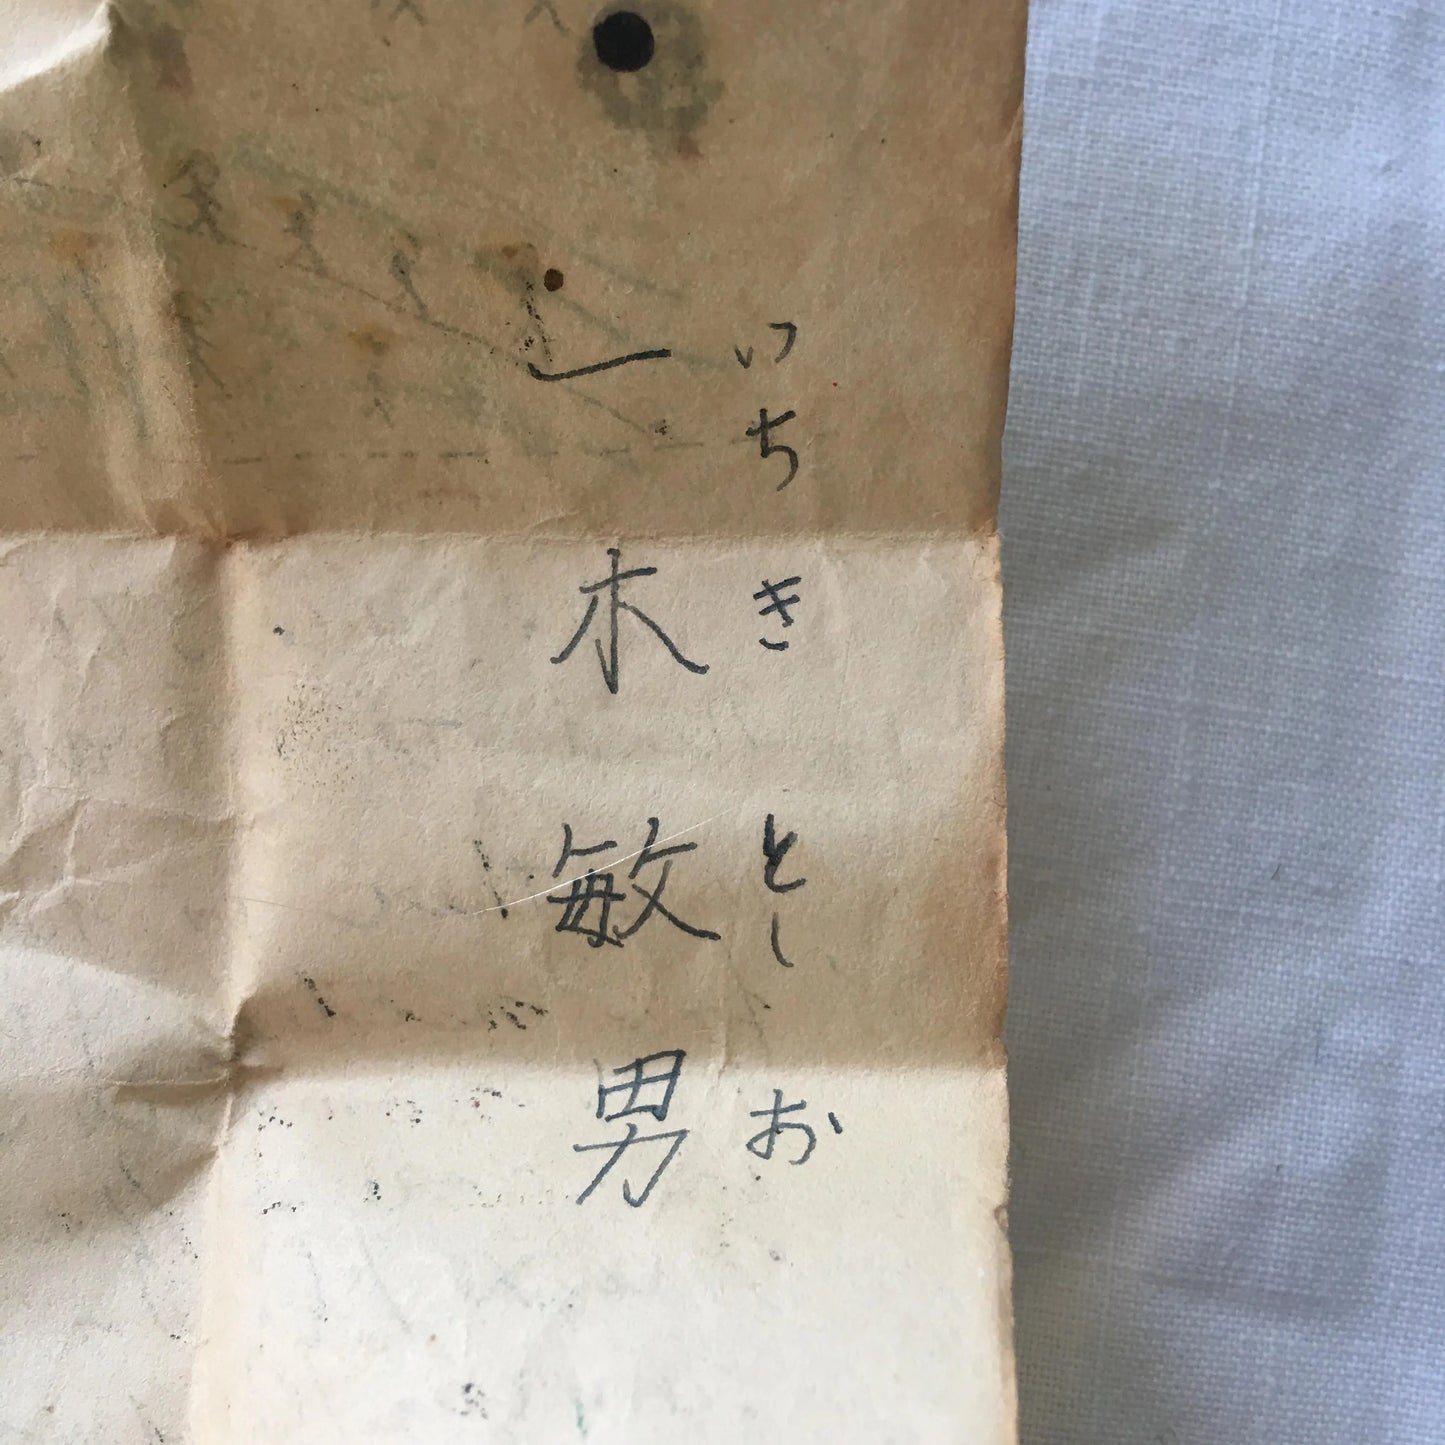 いちきとしお
一木敏男